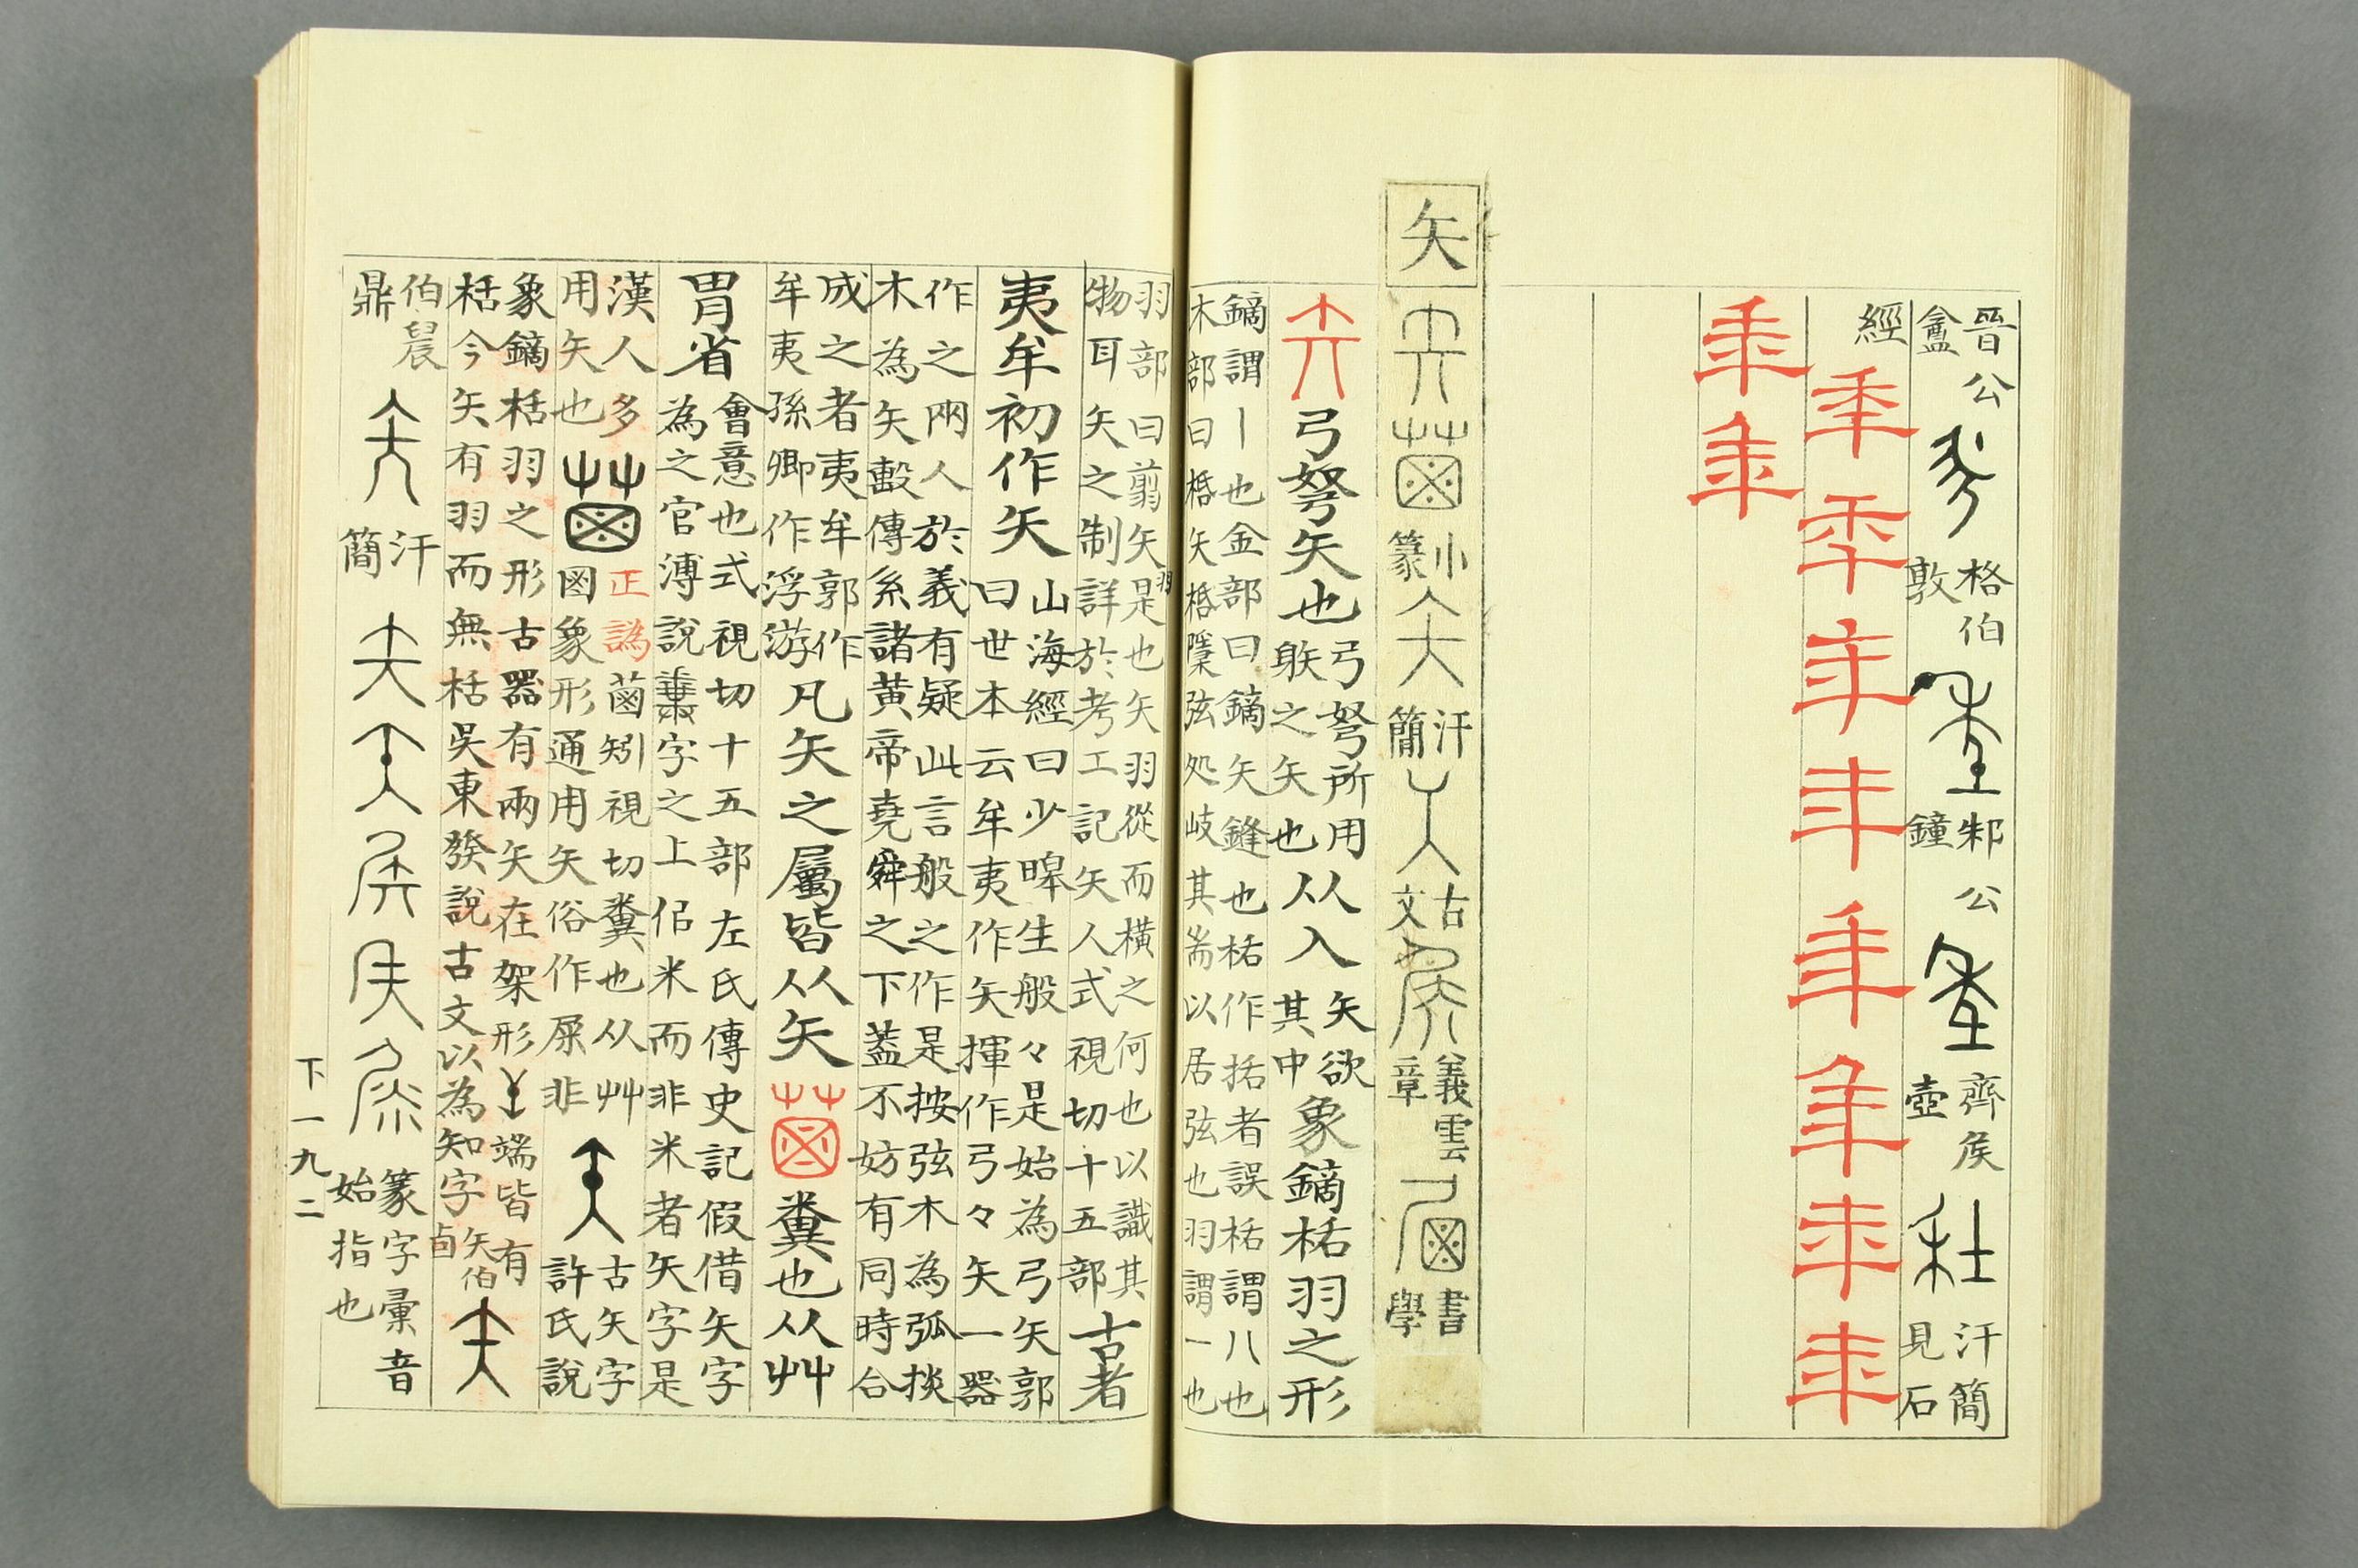 晉公盦 格伯敦 邾公鐘 齊侯壺 汗簡 見石
經
矢 小篆 汗簡 古文 義雲章 書學
弓弩矢也 弓弩所用躲之矢也 从入 矢欲其中 象鏑栝羽之形
鏑謂丨也金部曰鏑矢鏠也栝作括者誤栝謂八也
木部曰 矢 隱弦処岐其耑以居弦也羽謂一也
羽部曰翦矢羽是也矢羽從而橫之何也以識其
物耳矢之制詳於考工記矢人式視切十五部 古者
夷牟初作矢 山海經曰少暤生般々是始為弓矢郭
曰世本云牟夷作矢揮作弓々矢一器
作之兩人於義有疑此言般之作是按弦木為弧掞
木為矢毄傳系諸黃帝堯舜之下蓋不妨有同時合
成之者夷牟郭作
牟夷孫卿作浮游 凡矢之屬皆从矢 糞也从艸
胃省 會意也式視切十五部左氏傳史記假借矢字
為之官溥說糞字之上佀米而非米者矢字是
漢人多
用矢也 正譌 菡矧視切糞也从艸
囟象形通用矢俗作屎非 古矢字
許氏說
象鏑栝羽之形古器有兩矢在架形 端皆有
栝今矢有羽而無栝吳東發說古文以為知字 矢伯卣
伯晨鼎 汗簡 篆字彙音始指也
下一九二